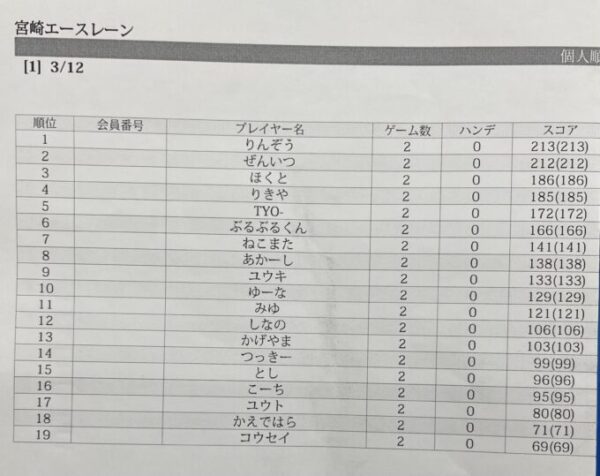 宮崎エースレーン
個人順
[1] 3/12
順位 会員番号 プレイヤー名 ゲーム数 ハンデ スコア
1 りんぞう 2 0 213(213)
2 ぜんいつ 2 0 212(212)
3 ほくと 2 0 186(186)
4 りきや 2 0 185(185)
5 TYO- 2 0 172(172)
6 ぶるぶるくん 2 0 166(166)
7 ねこまた 2 0 141(141)
8 あかーし 2 0 138(138)
9 ユウキ 2 0 133(133)
10 ゆーな 2 0 129(129)
11 みゆ 2 0 121(121)
12 しなの 2 0 106(106)
13 かげやま 2 0 103(103)
14 つっきー 2 0 99(99)
15 とし 2 0 96(96)
16 こーち 2 0 95(95)
17 ユウト 2 0 80(80)
18 かえではら 2 0 71(71)
19 コウセイ 2 0 69(69)